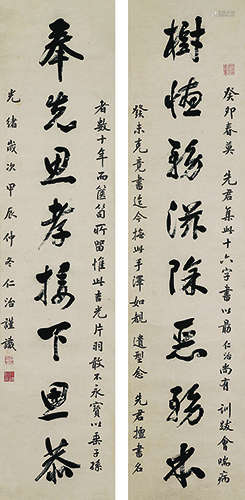 樹德務滋除惡務本
癸卯春莫 先君集此十六字書以勗仁治尚有 訓跋會喘病
發未克竟書迄今撫此手澤如覩 遺型念 先君擅書名
奉先思孝接下思恭
者數十年而篋笥所留惟此吉光片羽敢不永寶以垂子孫
光緒歲次甲辰仲冬仁治謹識